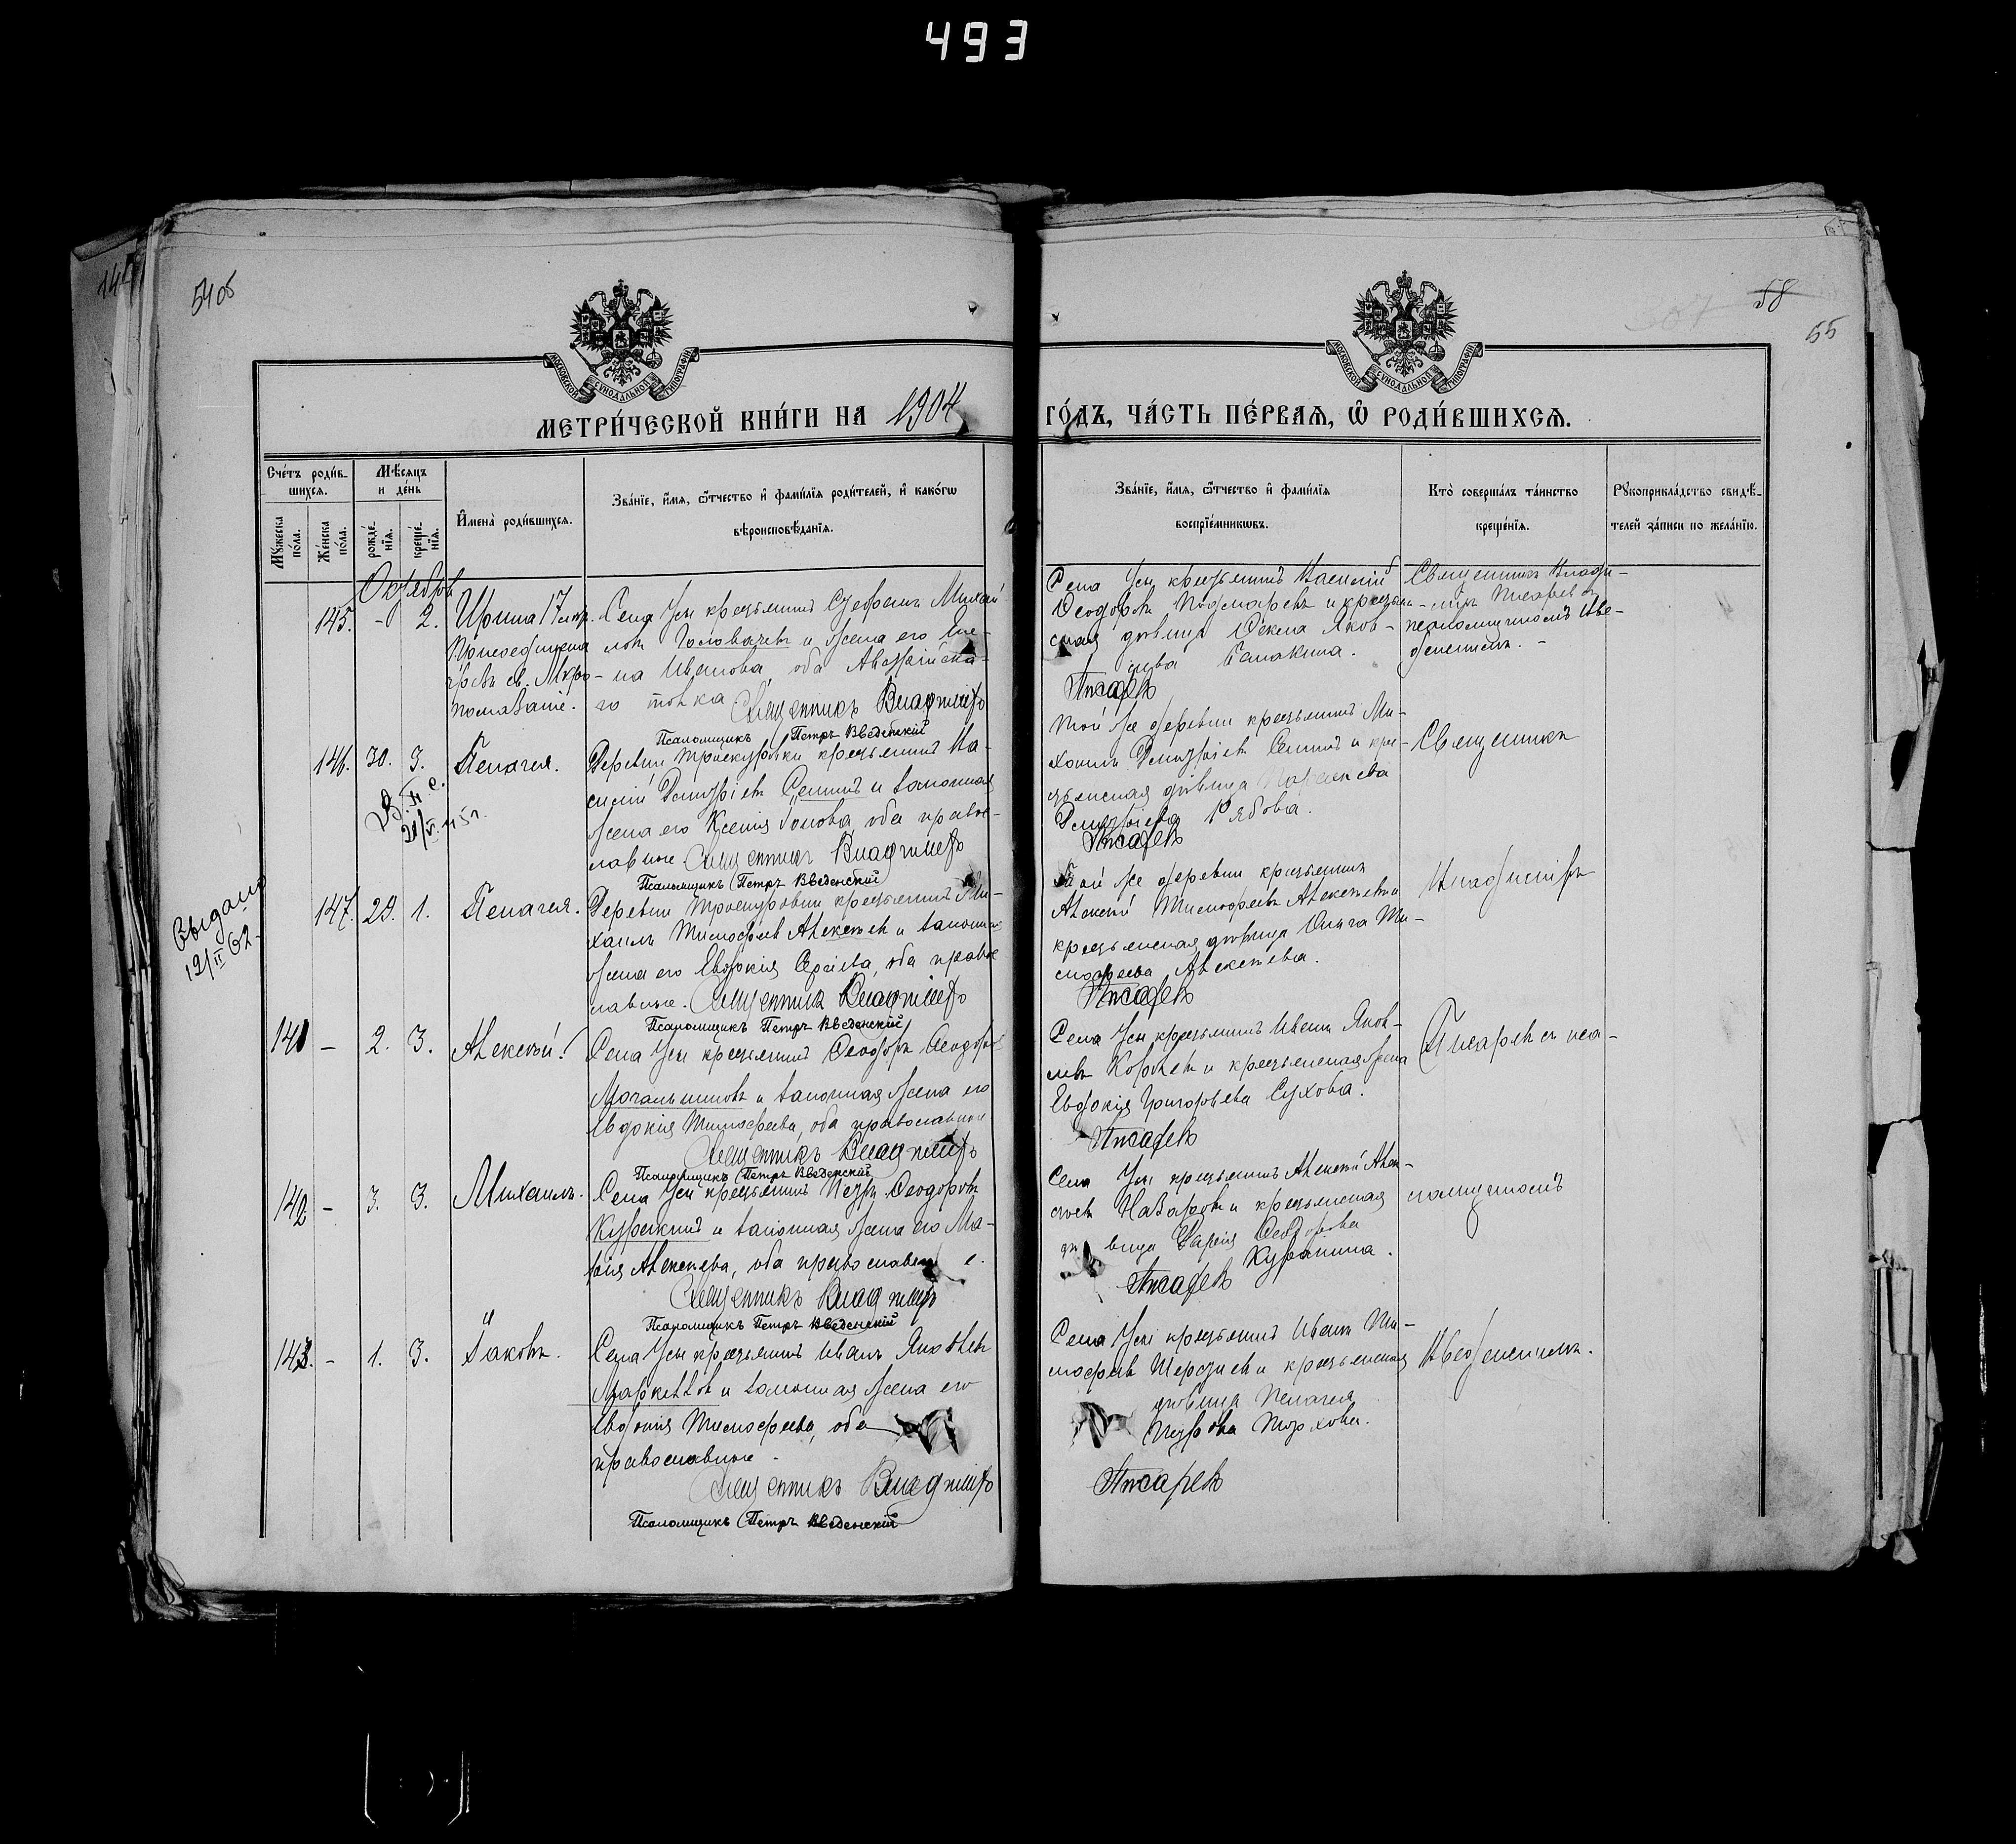 493
54об
58
55
МОСКОВСКОЙ СУНОДАЛЬНОЙ ТИПОГРАФІИ
МОСКОВСКОЙ СУНОДАЛЬНОЙ ТИПОГРАФІИ
МЕТРИ́ЧЕСКОЙ КНИ́ГИ НА 1904 ГО́ДЪ, ЧА́СТЬ ПЕ́РВАЯ, Ѡ҆ РОДИ́ВШИХСЯ.
Сче́тъ роди́в-
шихся.
Мѣсяцъ
и де́нь
Му́жеска по́ла.
Же́нска по́ла.
рожде́-
нія.
креще́-
нія.
И҆мена̀ роди́вшихся.
Зва́ніе, и҆́мя, ѻ҆́тчество и҆ фами́лія роди́телей, и҆ како́гѡ
вѣроисповѣ́данія.
Зва́ніе, и҆́мя, ѻ҆́тчество и҆ фами́лія
воспріе́мникѡвъ.
Кто̀ соверша́лъ та́инство
креще́нія.
Рꙋкоприкла́дство свидѣ́-
телей за́писи по жела́нію.
Октябрь
145. - 2. Ирина 17 лѣт.
Присоединена
чрезъ св. Мѵро-
помазаніе.
Села Усы крестьянинъ Стефанъ Михай-
ловъ Головачевъ и жена его Еле-
на Иванова, оба Австрійска-
го толка
Священникъ Владиміръ
Псаломщикъ Петръ Введенскій
Села Усы крестьянинъ Василій
Ѳеодоровъ и крестьян-
ская дѣвица Ѳекла Яков-
лева
Писаревъ
Священникъ Влади-
миръ Писаревъ съ
псаломщикомъ Вве-
денскимъ. -
146. 30. 3. Пелагея.
Деревни Проскуровки крестьянинъ Ва-
силій Димитріевъ Семинъ и законная
жена его Ксенія Іонова, оба правос-
лавные.
Священникъ Владиміръ
Псаломщикъ Петръ Введенскій
Той же деревни крестьянинъ Ми-
хаилъ Димитріевъ Семинъ и кре-
стьянская дѣвица
Димитріева Рябова.
Писаревъ
Священникъ
Выдано
12/II 62
147. 29. 1. Пелагея.
Деревни Проскуровки крестьянинъ Ми-
хаилъ Тимофеевъ Алексѣевъ и законная
жена его Евдокія Сергіева, оба правос
лавные.
Священникъ Владиміръ
Псаломщикъ Петръ Введенскій
Той же деревни крестьянинъ
Алексѣй Тимофеевъ Алексѣевъ и
крестьянская дѣвица Ольга Ти-
мофеева Алексѣева.
Писаревъ
Владиміръ
141 - 2. 3. Алексѣй.
Села Усы крестьянинъ Ѳеодоръ Ѳеодоровъ
и законная жена его
Евдокія Тимофеева, оба православные
Священникъ Владиміръ
Псаломщикъ Петръ Введенскій
Села Усы крестьянинъ Иванъ Яков-
левъ и крестьянская жена
Евдокія Григорьева Сухова.
Писаревъ
Писаревъ съ пса-
142 - 3. 3. Михаилъ.
Села Усы крестьянинъ Петръ Ѳеодоровъ
Куракинъ и законная жена его Ма-
рія Алексѣева, оба православные.
Священникъ Владиміръ
Псаломщикъ Петръ Введенскій
Села Усы крестьянинъ Алексѣй Алек-
сѣевъ Назаровъ и крестьянская
дѣвица Дарія Ѳеодорова
Куракина.
Писаревъ
ломщикомъ
143. - 1. 3. Іаковъ.
Села Усы крестьянинъ Иванъ Яковлевъ
и законная жена его
Евдокія Тимофеева, оба
православные -
Священникъ Владиміръ
Псаломщикъ Петръ Введенскій
Села Усы крестьянинъ Иванъ Ти-
мофеевъ и крестьянская
дѣвица Пелагея
Петрова
Писаревъ
Введенскимъ.